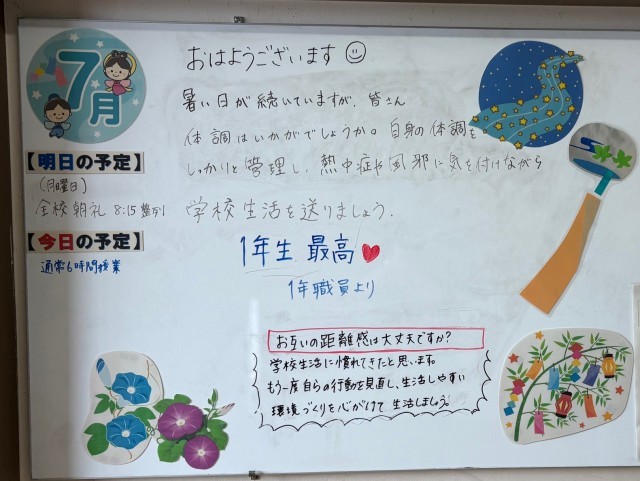 7月
おはようございます
暑い日が続いていますが、皆さん
体調はいかがでしょうか。自身の体調を
しっかりと管理し、熱中症や風邪に気を付けながら
学校生活を送りましょう。
【明日の予定】
(月曜日)
全校朝礼 8:15 整列
【今日の予定】
通常6時間授業
1年生 最高
1年職員より
お互いの距離感は大丈夫ですか?
学校生活に慣れてきたと思います。
もう一度自らの行動を見直し、生活しやすい
環境づくりを心がけて 生活しましょう。